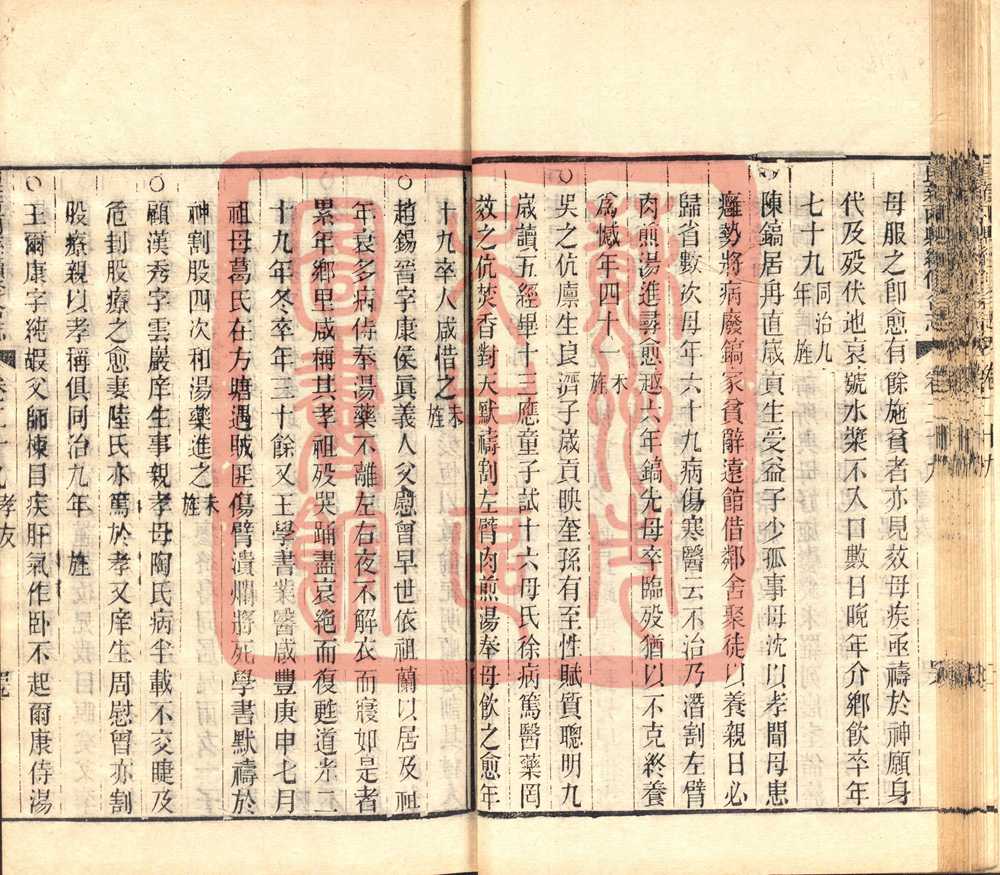 母服之卽愈有餘施貧者亦見效母疾亟禱於神願身
代及殁伏地哀號水漿不入口數日晚年介鄉飲卒年
七十九同治九年旌
○陳鎬居甪直歲貢生受益子少孤事母沈以孝聞母患
癰勢將病廢鎬家貧辭遠館借鄰舍聚徒以養親日必
歸省數次母年六十九病傷寒醫云不治乃潛割左臂
肉煎湯進尋愈越六年鎬先母卒臨殁猶以不克終養
爲憾年四十一未旌
○吳之伉廩生良濟子歲貢映奎孫有至性賦質聰明九
歲讀五經畢十三應童子試十六母氏徐病篤醫藥罔
效之伉焚香對天默禱割左臂肉煎湯奉母飲之愈年
十九卒人咸惜之未旌
○趙錫晉字康侯眞義人父慰曾早世依祖蘭以居及祖
年衰多病侍奉湯藥不離左右夜不解衣而寢如是者
累年鄉里咸稱其孝祖殁哭踊盡哀絶而復甦道光二
十九年冬卒年三十餘又王學書業醫咸豐庚申七月
祖母葛氏在方塘遇賊匪傷臂潰爛將死學書默禱於
神割股四次和湯藥進之未旌
○顧漢秀字雲嚴庠生事親孝母陶氏病半載不交睫及
危刲股療之愈妻陸氏亦篤於孝又庠生周慰曾亦割
股療親以孝稱俱同治九年旌
○王爾康字純嘏父師棟目疾肝氣作卧不起爾康侍湯
孝友